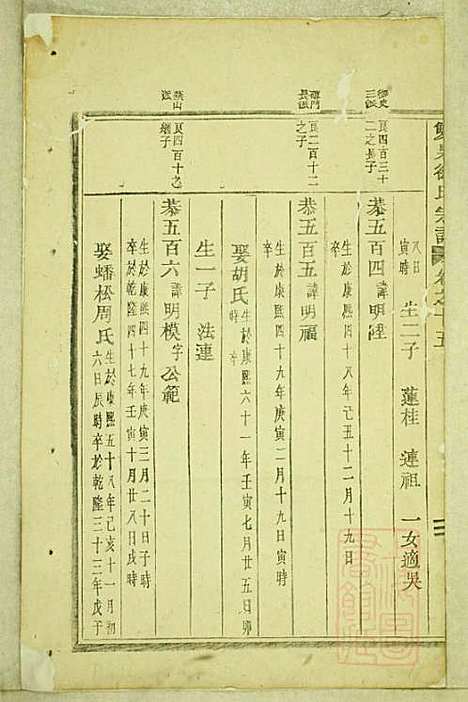 八日
寅時
生二子 蓮桂 漣祖 一女適吴
三派
良四百三十
二之長子
恭五百四諱明陞
生於康熙四十八年己丑十二月十九日
卒
長派
良二百十二
之子
恭五百五諱明福
生於康熙四十九年庚寅二月十九日寅時
卒
娶胡氏
生於康熙六十一年壬寅七月廿五日卯
時卒
生一子 法連
良四百十之
繼子
恭五百六諱明模字公範
生於康熙四十九年庚寅三月二十日子時
卒於乾隆四十七年壬寅十月廿八日戌時
娶蟠松周氏
生於康熙五十八年己亥十一月初
六日辰時卒於乾隆三十三年戊子